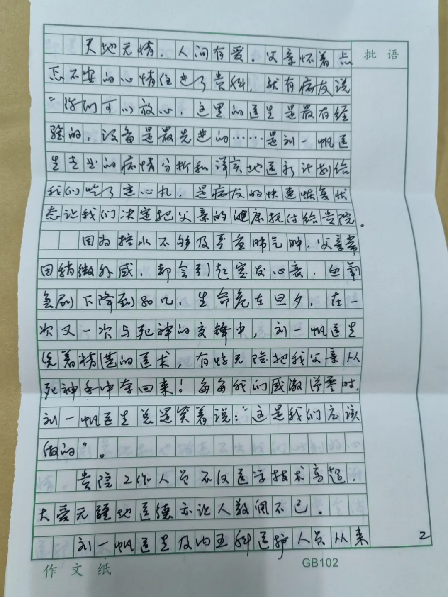 批语
天地无情,人间有爱。父亲怀着忐
忑不安的心情住进了贵科,就有病友说
“你们可以放心,这里的医生是最有经
验的,设备是最先进的……是刘一帆医
生专业的病情分析和详实地医疗计划给
我们吃了定心丸,是病友的快速恢复状
态让我们决定把父亲的健康托付给贵院。
因为控水不够及重度肺气肿,父亲常
因稍微外感,都会引起突发心衰,血氧
急剧下降到80几,生命危在旦夕,在一
次又一次与死神的交锋中,刘一帆医生
凭着精湛的医术,有惊无险地把父亲从
死神手中夺回来!每每我们感激涕零时,
刘一帆医生总是笑着说:“这是我们应该
做的”。
贵院工作人员不仅医学技术高超,
大爱无疆地医德亦让人敬佩不已。
刘一帆医生及内五科医护人员从来
2
作文纸
GB102